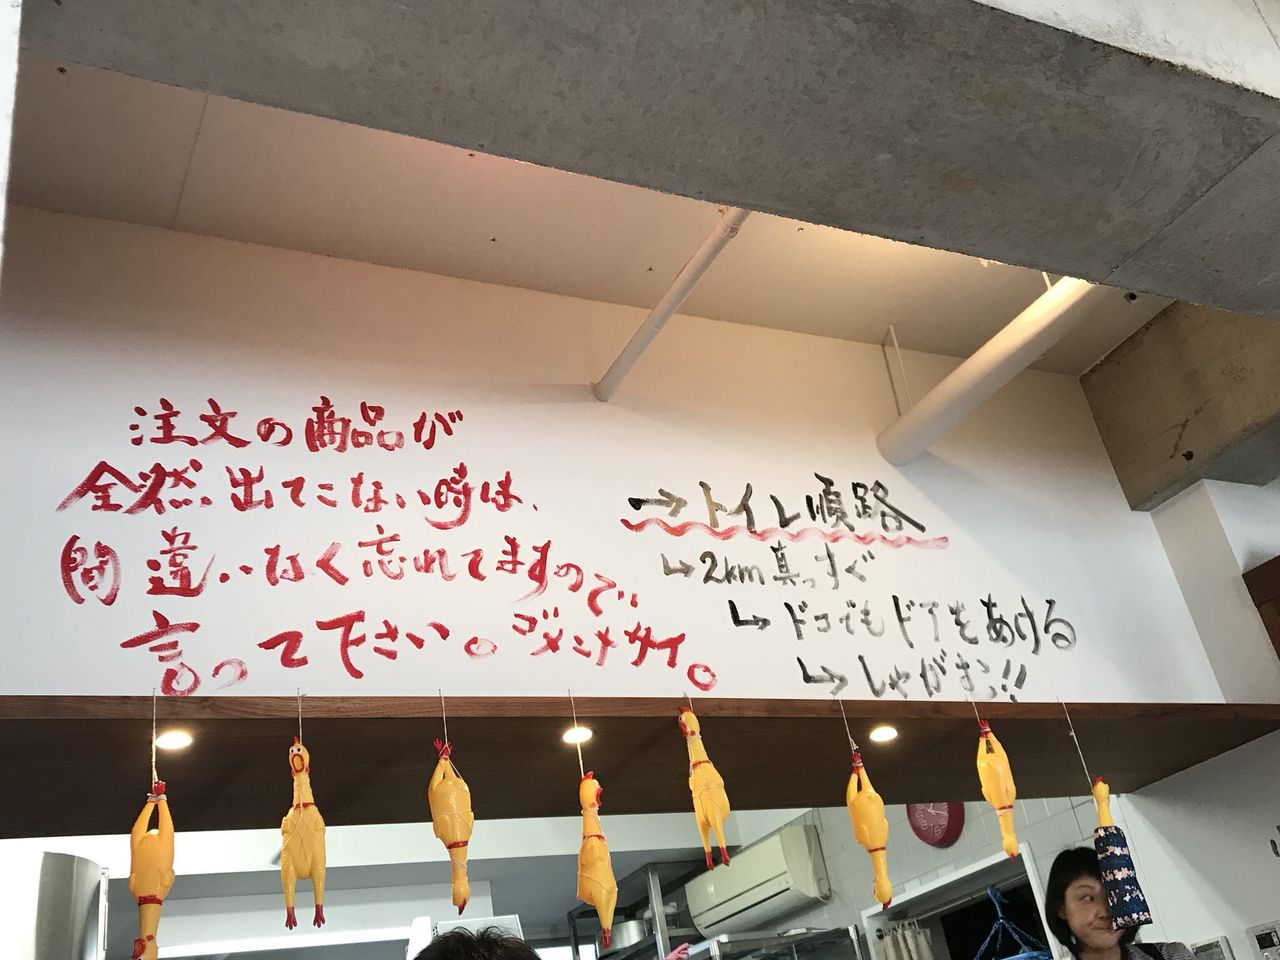 注文の商品が
全然出てこない時は、
間違いなく忘れてますので、
言って下さい。ゴメンナサイ。
→トイレ順路
↳2km真っすぐ
↳ドコでもドアをあける
↳しゃがむっ!!